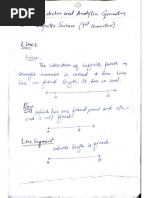 ①
Calculus and Analytic Geometry
Computer Science (1st Semester)
Lines
Line
The collection of infinite points in
straight manner is called a line. Line
has no fixed length. It has no end.
A B
Ray
Which has one fixed point and other
end is not fixed.
A B
Line Segment
whose length is fixed.
A B